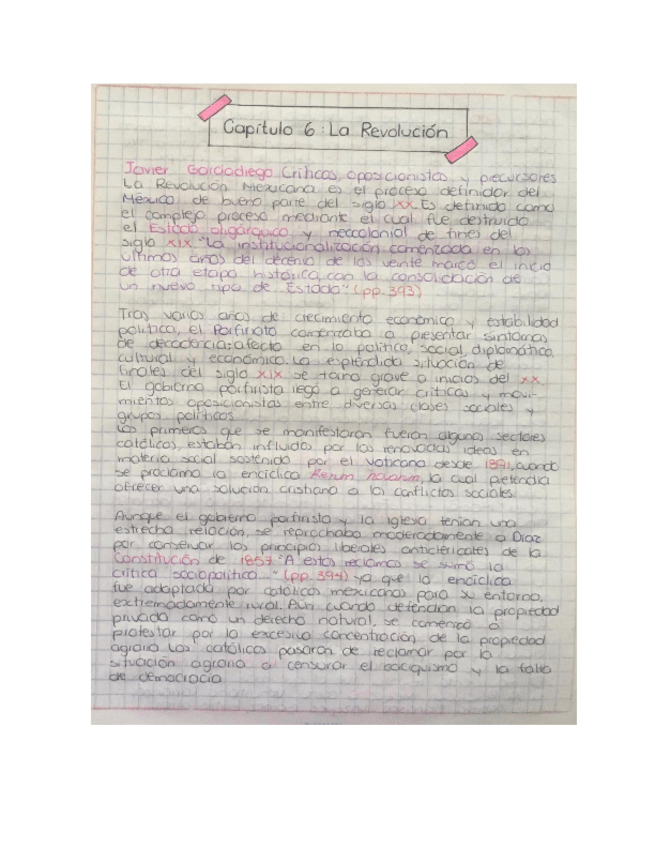 Capítulo 6: La Revolución
Javier Garciadiego Críticos, oposicionistas y precursores
La Revolución Mexicana es el proceso definidor del
México de buena parte del siglo XX. Es definida como
el complejo proceso mediante el cual fue destruido
el Estado oligárquico y neocolonial de fines del
siglo XIX "La institucionalización comenzada en los
últimos años del decenio de los veinte marcó el inicio
de otra etapa histórica, con la consolidación de
un nuevo tipo de Estado" (pp. 393)
Tras varios años de crecimiento económico y estabilidad
política, el Porfiriato comenzaba a presentar síntomas
de decadencia: afectó en lo político, social, diplomático,
cultural y económico. La espléndida situación de
finales del siglo XIX se tornó grave a inicios del XX.
El gobierno porfirista llegó a generar críticas y movi-
mientos oposicionistas entre diversas clases sociales y
grupos políticos.
Los primeros que se manifestaron fueron algunos sectores
católicos, estaban influidos por las renovadas ideas en
materia social sostenido por el Vaticano desde 1891, cuando
se proclamó la encíclica Rerum novarum, la cual pretendía
ofrecer una solución cristiana a los conflictos sociales.
Aunque el gobierno porfirista y la iglesia tenían una
estrecha relación, se reprochaba moderadamente a Díaz
por conservar los principios liberales anticlericales de la
Constitución de 1857 "A estos reclamos se sumó la
crítica sociopolítica..." (pp. 394) ya que la encíclica
fue adaptada por católicos mexicanos para su entorno,
extremadamente rural. Aún cuando defendían la propiedad
privada como un derecho natural, se comenzó a
protestar por la excesiva concentración de la propiedad
agraria. Los católicos pasaron de reclamar por la
situación agraria a censurar el caciquismo y la falta
de democracia